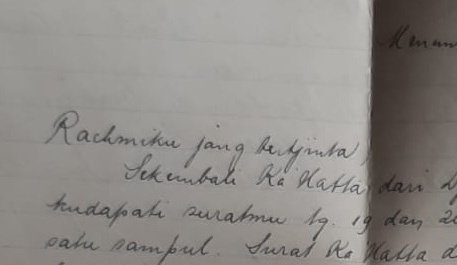 Menum
Rachmiku jang tertjinta,
Sekembali Ka Hatta dari Dj
kudapati suratmu tg. 19 dan 20
satu sampul. Surat Ka Hatta d